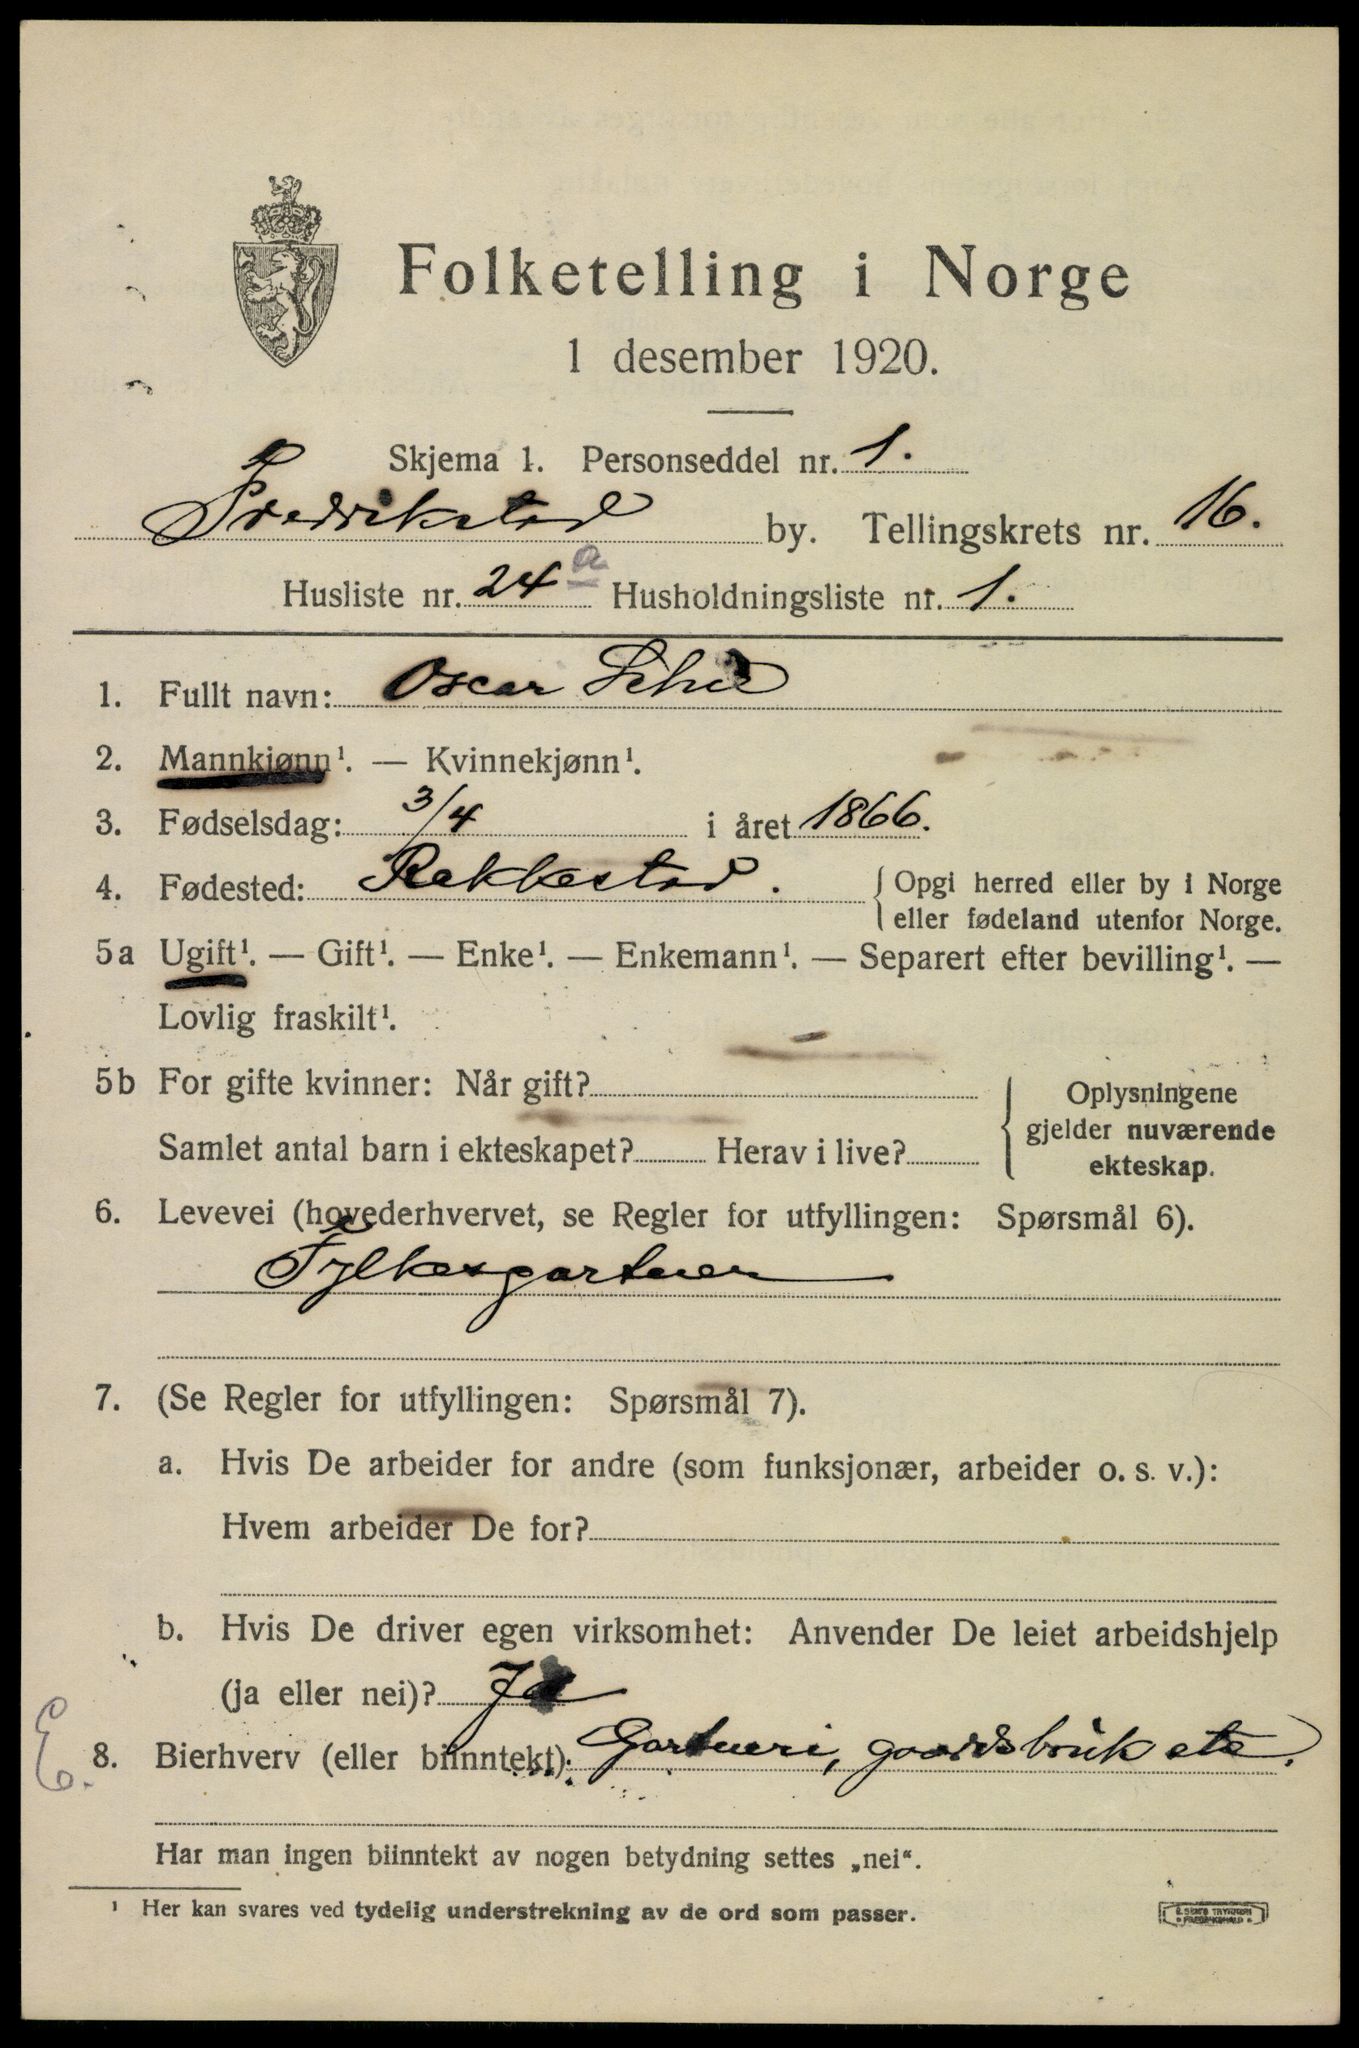 Folketelling i Norge
1 desember 1920.
Skjema 1. Personseddel nr. 1.
Fredrikstad by. Tellingskrets nr. 16.
Husliste nr. 24 a Husholdningsliste nr. 1.
1. Fullt navn: Oscar Schie
2. Mannkjønn¹. — Kvinnekjønn¹.
3. Fødselsdag: 3/4 i året 1866.
4. Fødested: Rakkestad. { Opgi herred eller by i Norge
eller fødeland utenfor Norge.
5a Ugift¹. — Gift¹. — Enke¹. — Enkemann¹. — Separert efter bevilling¹. —
Lovlig fraskilt¹.
5b For gifte kvinner: Når gift? { Oplysningene
gjelder nuværende
ekteskap.
Samlet antal barn i ekteskapet? Herav i live?
6. Levevei (hovederhvervet, se Regler for utfyllingen: Spørsmål 6).
Fylkesgartner
7. (Se Regler for utfyllingen: Spørsmål 7).
a. Hvis De arbeider for andre (som funksjonær, arbeider o. s. v.):
Hvem arbeider De for?
b. Hvis De driver egen virksomhet: Anvender De leiet arbeidshjelp
(ja eller nei)? Ja
E.
8. Bierhverv (eller biinntekt): Gartneri, gaardsbruk etc.
Har man ingen biinntekt av nogen betydning settes „nei“.
¹ Her kan svares ved tydelig understrekning av de ord som passer.